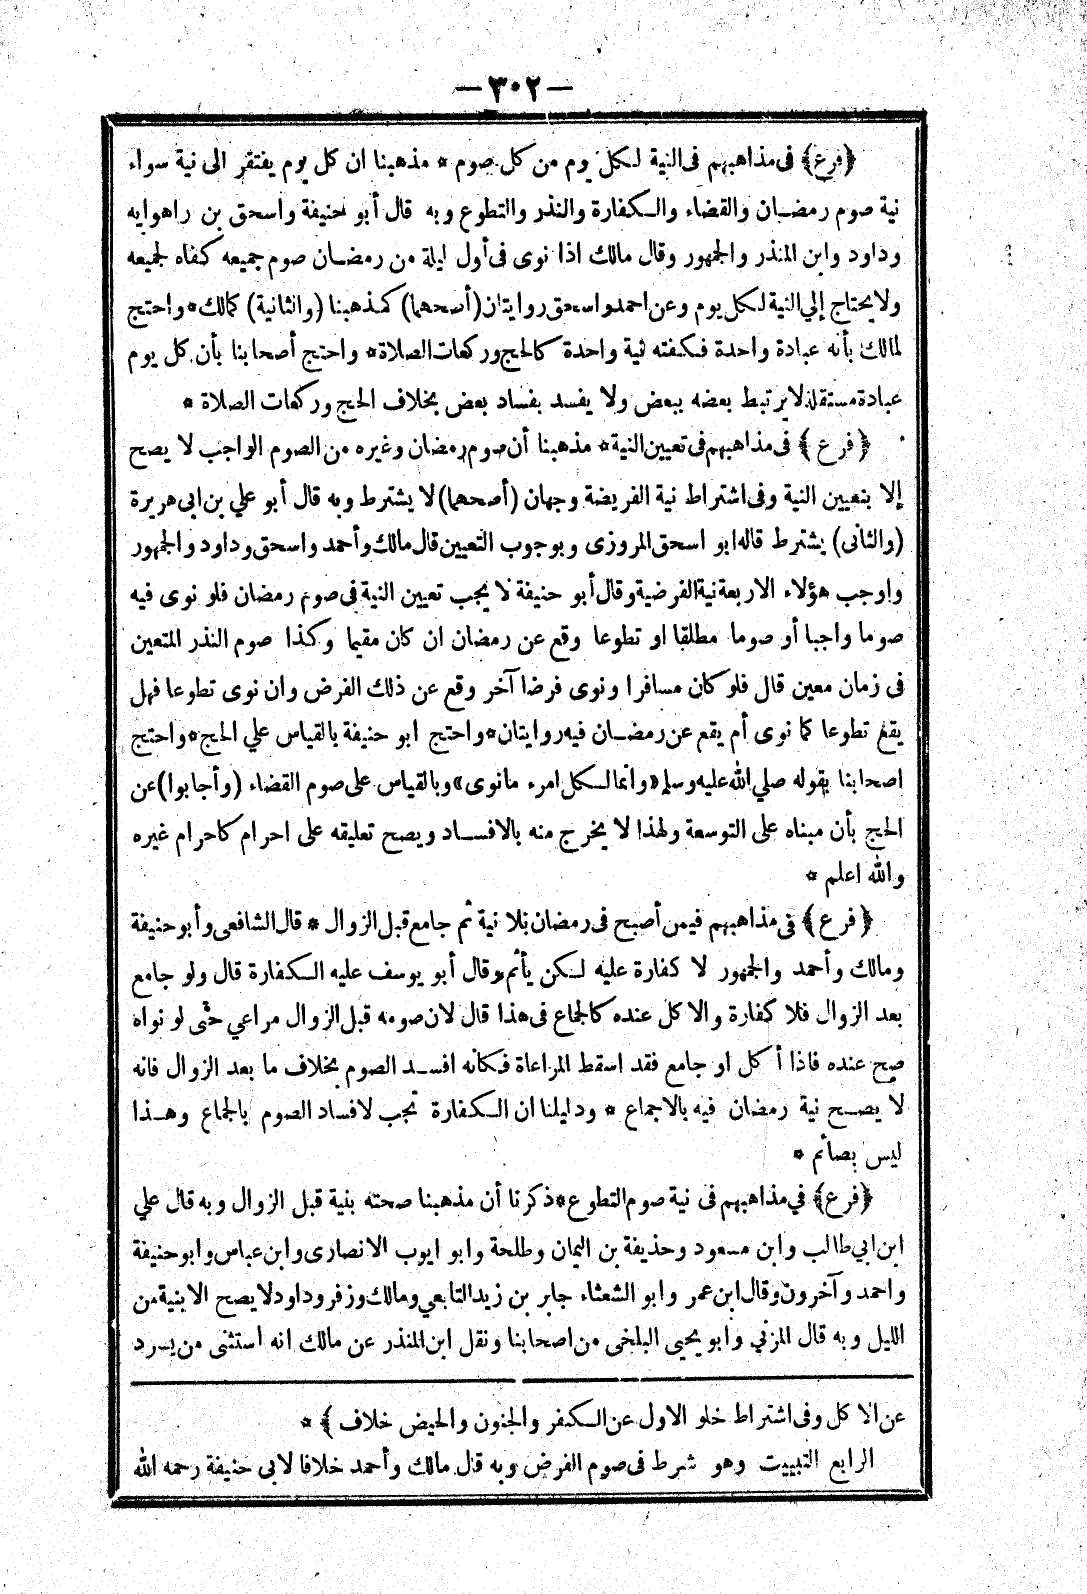 — ٣٠٢ —
﴿فرع﴾ فى مذاهبهم فى النية لكل يوم من كل صوم * مذهبنا ان كل يوم يفتقر الى نية سواء
نية صوم رمضان والقضاء والكفارة والنذر والتطوع وبه قال أبو حنيفة واسحق بن راهوايه
وداود وابن المنذر والجمهور وقال مالك اذا نوى فى أول ليلة من رمضان صوم جميعه كفاه لجميعه
ولا يحتاج إلي النية لكل يوم وعن احمد واسحق روايتان (أصحهما) كمذهبنا (والثانية) كمالك * واحتج
لمالك بأنه عبادة واحدة فكفته نية واحدة كالحج وركعات الصلاة * واحتج أصحابنا بأن كل يوم
عبادة مستقلة لا يرتبط بعضه ببعض ولا يفسد بفساد بعض بخلاف الحج وركعات الصلاة *
﴿فرع﴾ فى مذاهبهم فى تعيين النية * مذهبنا أن صوم رمضان وغيره من الصوم الواجب لا يصح
إلا بتعيين النية وفى اشتراط نية الفريضة وجهان (أصحهما) لا يشترط وبه قال أبو علي بن ابى هريرة
(والثانى) يشترط قاله ابو اسحق المروزى وبوجوب التعيين قال مالك وأحمد واسحق وداود والجمهور
واوجب هؤلاء الاربعة نية الفرضية وقال أبو حنيفة لا يجب تعيين النية فى صوم رمضان فلو نوى فيه
صوما واجبا أو صوما مطلقا او تطوعا وقع عن رمضان ان كان مقيما وكذا صوم النذر المتعين
فى زمان معين قال فلو كان مسافرا ونوى فرضا آخر وقع عن ذلك الفرض وان نوى تطوعا فهل
يقع تطوعا كما نوى أم يقع عن رمضان فيه روايتان * واحتج ابو حنيفة بالقياس علي الحج * واحتج
اصحابنا بقوله صلي الله عليه وسلم «وانما لكل امرء مانوى» وبالقياس على صوم القضاء (وأجابوا) عن
الحج بأن مبناه على التوسعة ولهذا لا يخرج منه بالافساد ويصح تعليقه على احرام كاحرام غيره
والله اعلم *
﴿فرع﴾ فى مذاهبهم فيمن أصبح فى رمضان بلا نية ثم جامع قبل الزوال * قال الشافعى وأبو حنيفة
ومالك وأحمد والجمهور لا كفارة عليه لكن يأثم وقال أبو يوسف عليه الكفارة قال ولو جامع
بعد الزوال فلا كفارة والاكل عنده كالجماع فى هذا قال لان صومه قبل الزوال مراعي حتى لو نواه
صح عنده فاذا أكل او جامع فقد اسقط المراعاة فكانه افسد الصوم بخلاف ما بعد الزوال فانه
لا يصح نية رمضان فيه بالاجماع * ودليلنا ان الكفارة تجب لافساد الصوم بالجماع وهذا
ليس بصائم *
﴿فرع﴾ في مذاهبهم فى نية صوم التطوع * ذكرنا أن مذهبنا صحته بنية قبل الزوال وبه قال علي
ابن ابي طالب وابن مسعود وحذيفة بن اليمان وطلحة وابو ايوب الانصارى وابن عباس وابو حنيفة
واحمد وآخرون وقال ابن عمر وابو الشعثاء جابر بن زيد التابعي ومالك وزفر وداود لا يصح الا بنية من
الليل وبه قال المزني وابو يحيى البلخى من اصحابنا ونقل ابن المنذر عن مالك انه استثنى من يسرد
عن الاكل وفى اشتراط خلو الاول عن الكفر والجنون والحيض خلاف ﴾ *
الرابع التبييت وهو شرط فى صوم الفرض وبه قال مالك وأحمد خلافا لابى حنيفة رحمه الله